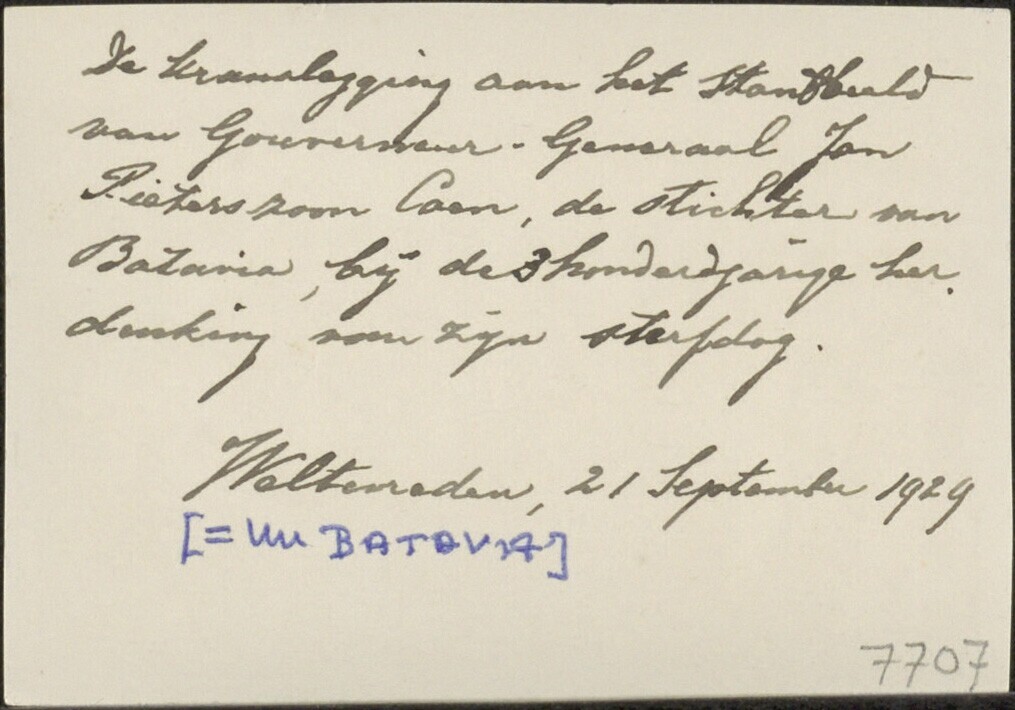 De kranslegging aan het standbeeld
van Gouverneur-Generaal Jan
Pieterszoon Coen, de stichter van
Batavia, bij de 3honderdjarige her-
denking van zijn sterfdag.
Weltevreden, 21 September 1929
[= nu BATAVIA]
7707